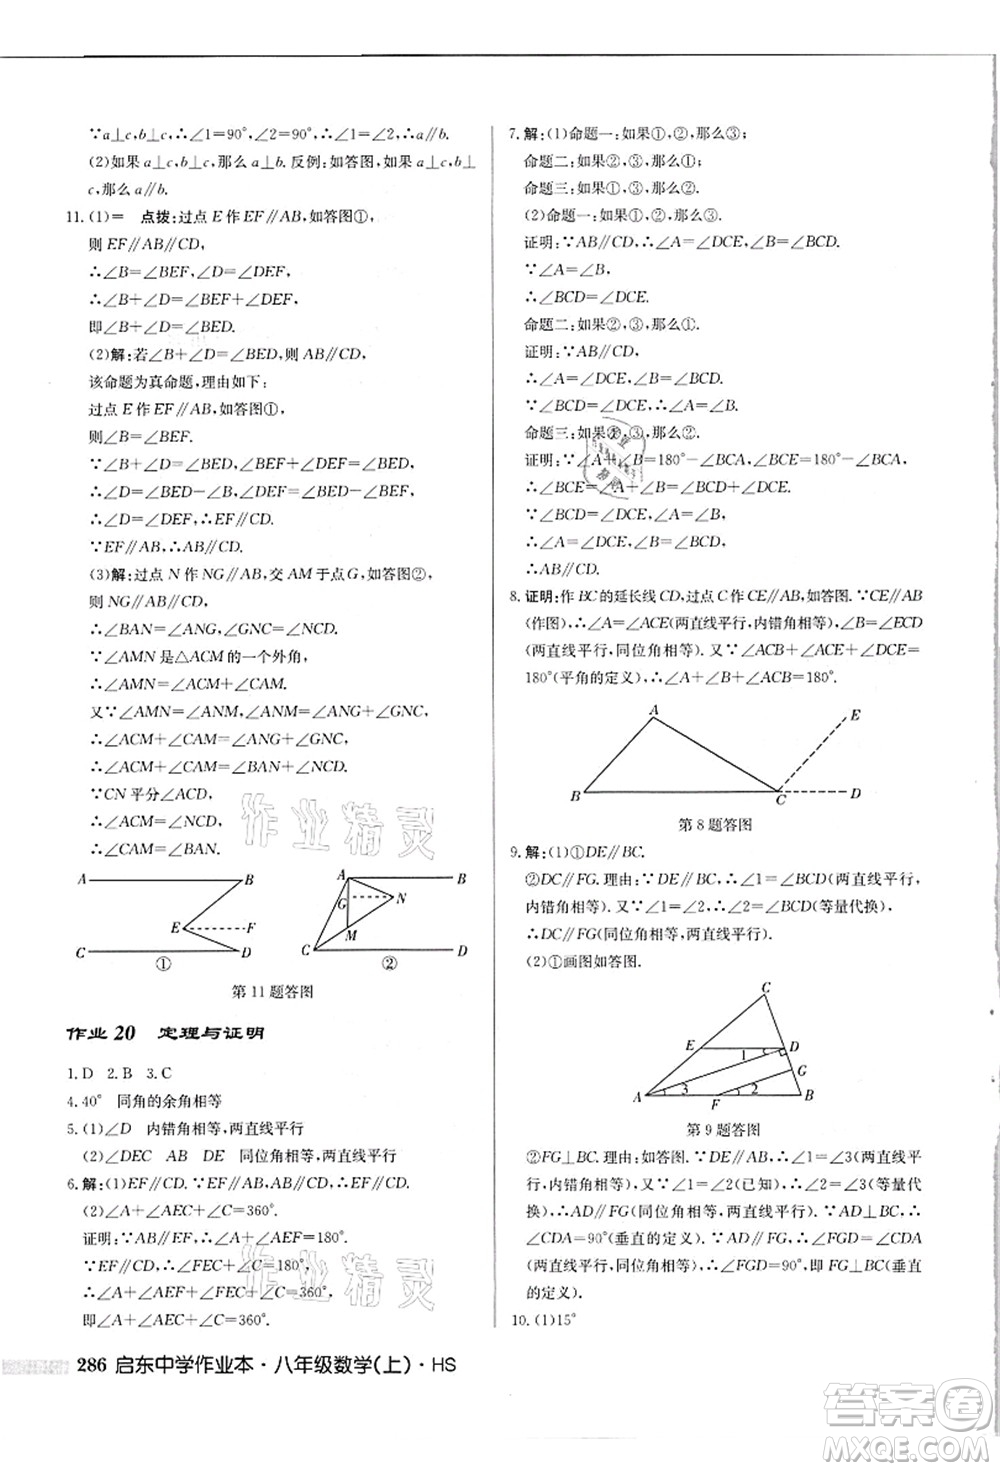 ∵a⊥c,b⊥c,∴∠1=90°,∠2=90°,∴a∥b.
(2)如果a⊥c,b⊥c,那么a⊥b.反例:如答图,a⊥
c,b⊥c,那么a∥b.
11.(1)= 点拨:过点E作EF∥AB,如答图①,
则EF∥AB∥CD,
∴∠B=∠BEF,∠D=∠DEF,
∴∠B+∠D=∠BEF+∠DEF,
即∠B+∠D=∠BED.
(2)解:若∠B+∠D=∠BED,则AB∥CD,
该命题为真命题,理由如下:
过点E作EF∥AB,如答图①,
则∠B=∠BEF.
∵∠B+∠D=∠BED,
∴∠D=∠BED-∠B,∠DEF=∠BED-∠BEF,
∴∠D=∠DEF,∴EF∥CD.
∵EF∥AB,∴AB∥CD.
(3)解:过点N作NG∥AB,交AM于点G,如答图②,
则NG∥AB∥CD,
∴∠BAN=∠ANG,∠GNC=∠NCD,
∵∠AMN是△ACM的一个外角,
∴∠AMN=∠ACM+∠CAM.
又∵∠AMN=∠ANC,∠ANC=∠ANG+∠GNC,
∴∠ACM+∠CAM=∠ANG+∠GNC,
∴∠ACM+∠CAM=∠BAN+∠NCD,
∵CN平分∠ACD,
∴∠ACM=∠NCD,
∴∠CAM=∠BAN.
A B E F C D ①
A B G N M C D ②
第11题答图
作业20 定理与证明
1.D 2.B 3.C
4.40° 同角的余角相等
5.(1)∠D 内错角相等,两直线平行
(2)∠DEC AB DE 同位角相等,两直线平行
6.解:(1)EF∥CD.∵EF∥AB,AB∥CD,∴EF∥CD.
(2)∠A+∠AEC+∠C=360°.
证明:∵AB∥EF,∴∠A+∠AEF=180°.
∵EF∥CD,∴∠FEC+∠C=180°,
∴∠A+∠AEF+∠FEC+∠C=360°,
即∠A+∠AEC+∠C=360°.
286 启东中学作业本·八年级数学(上)·HS
7.解:(1)命题一:如果①,②,那么③;
命题二:如果②,③,那么①;
命题三:如果①,③,那么②;
(2)命题一:如果①,②,那么③;
证明:∵AB∥CD,∴∠A=∠DCE,∠B=∠BCD.
∵∠A=∠B,
∴∠BCD=∠DCE.
命题二:如果②,③,那么①;
证明:∵AB∥CD,
∴∠A=∠DCE,∠B=∠BCD.
∵∠BCD=∠DCE,∴∠A=∠B.
命题三:如果①,③,那么②;
证明:∵∠A+∠B=180°-∠BCA,∠BCE=180°-
∠BCA,∴∠BCE=∠A+∠B.
∵∠A=∠B,∠BCD=∠DCE,
∴∠B=∠BCD,
∴AB∥CD.
8.证明:作BC的延长线CD,过点C作CE∥AB,如答图.∵CE∥AB
(作图),∴∠A=∠ACE(两直线平行,内错角相等),∠B=∠ECD
(两直线平行,同位角相等).又∵∠ACB+∠ACE+∠ECD=
180°(平角的定义),∴∠A+∠B+∠ACB=180°.
A E B C D
第8题答图
9.解:(1)①DE∥BC.
②DC∥FG.理由:∵DE∥BC,∴∠1=∠BCD(两直线平行,
内错角相等).又∵∠1=∠2,∴∠BCD=∠2(等量代换),
∴DC∥FG(同位角相等,两直线平行).
(2)①画图如答图.
C E D 1 G A 3 F 2 B
第9题答图
②FG⊥BC.理由:如答图.∵DE∥AB,∴∠1=∠3(两直线平行,
内错角相等).∵∠1=∠2(已知),∴∠2=∠3(等量代
换),∴AD∥FG(同位角相等,两直线平行).∵AD⊥BC,∴
∠CDA=90°(垂直的定义).又∵AD∥FG,∴∠FGD=∠CDA
(两直线平行,同位角相等),∴∠FGD=90°,即FG⊥BC(垂直
的定义).
10.(1)15°
作业精灵
作业精灵
答案圈
MXQE.COM